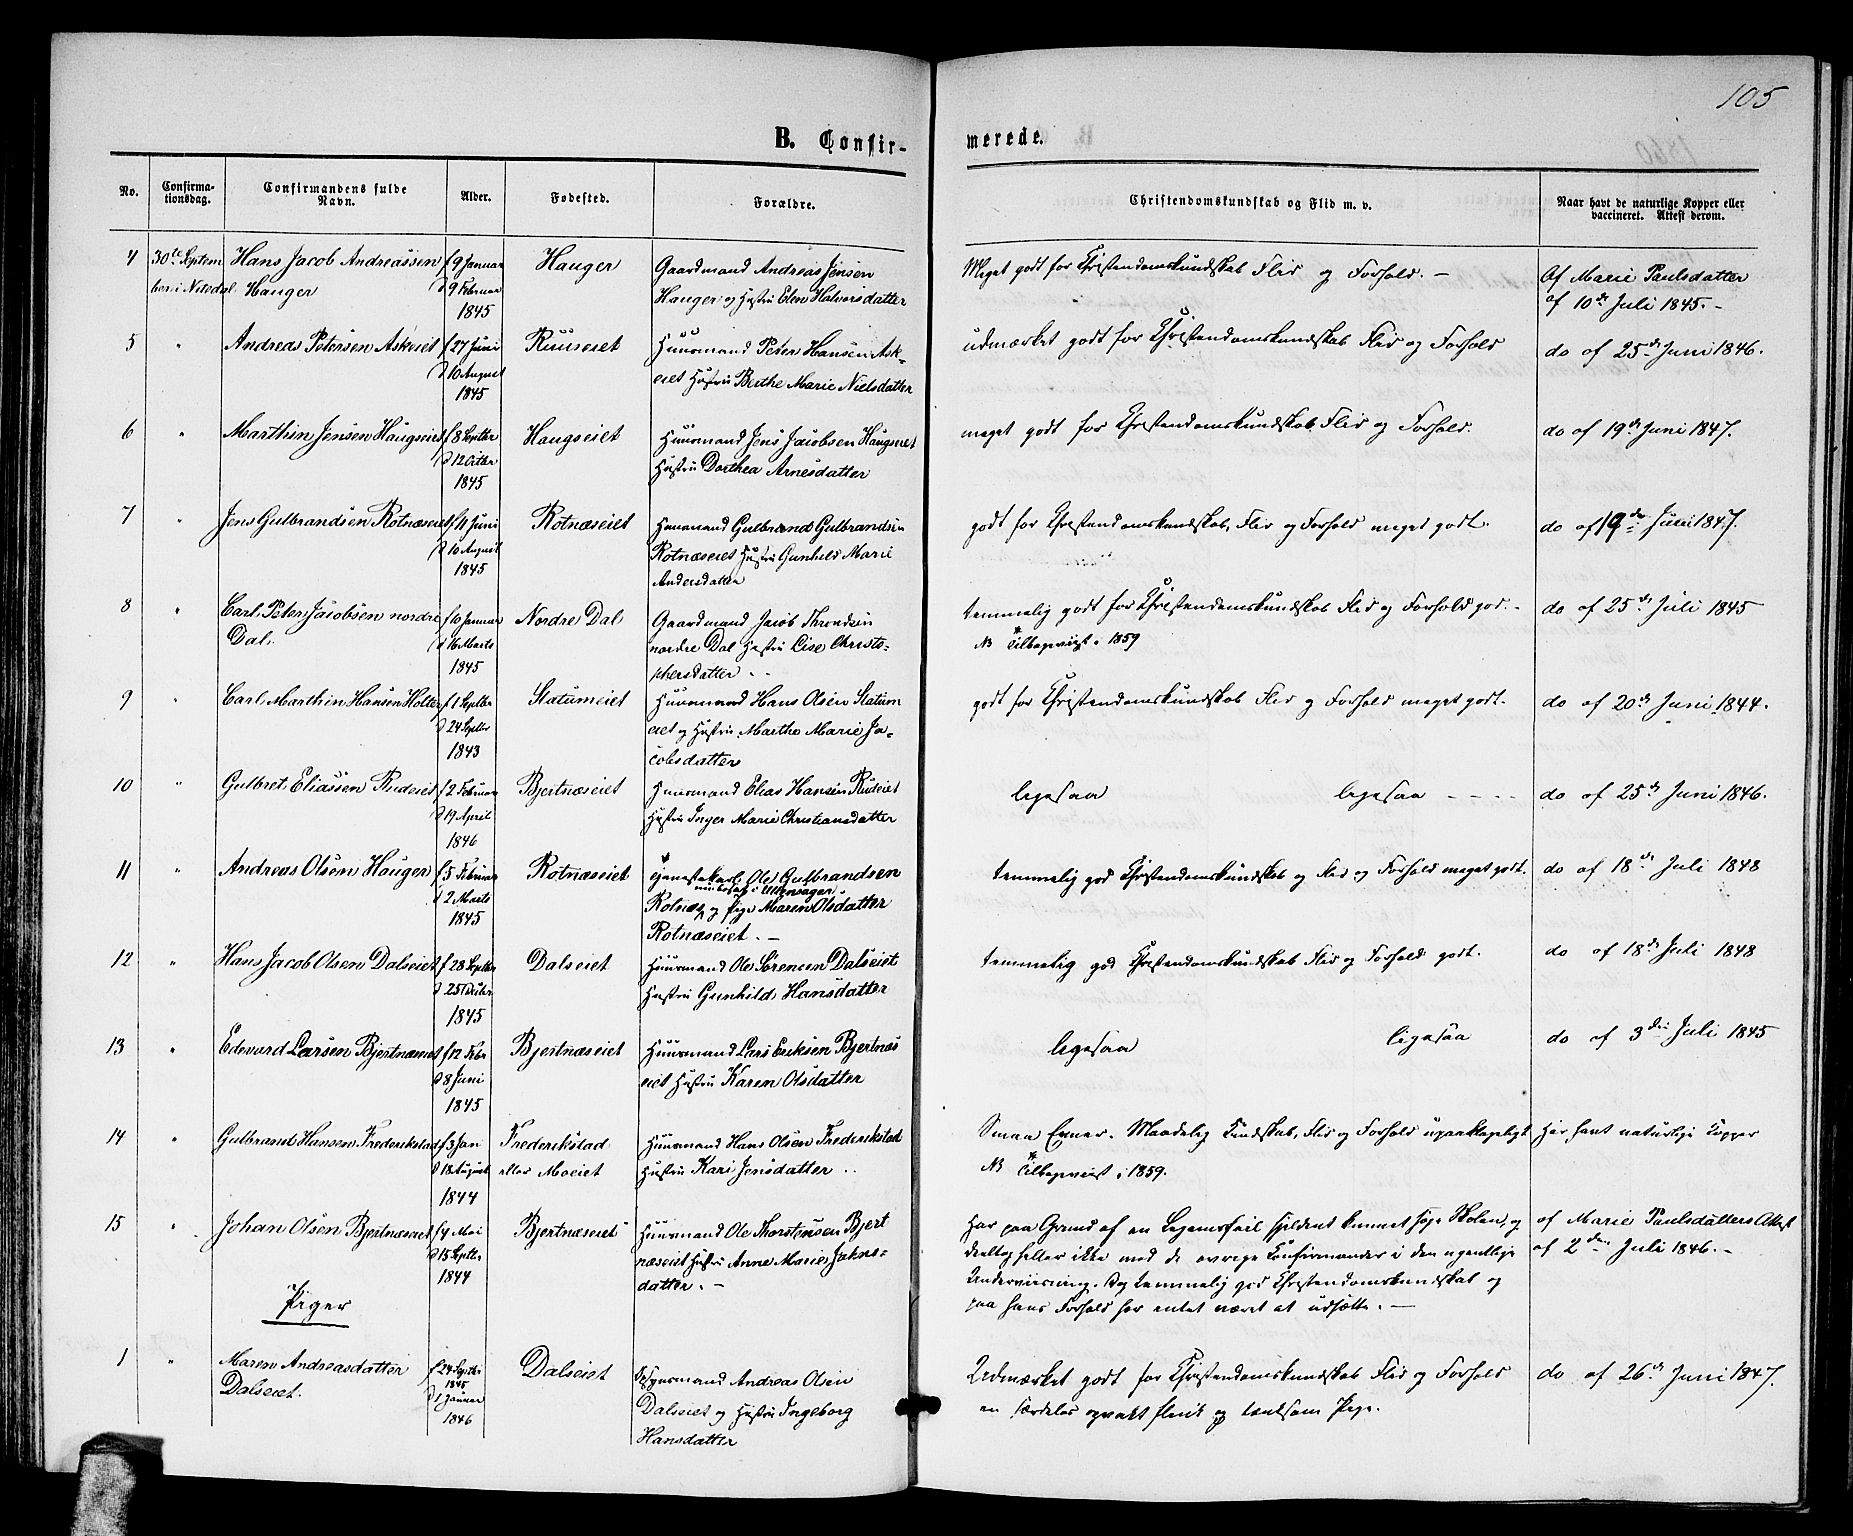 105
B. Confir-
merede.
No.
Confirma-
tionsdag.
Confirmandens fulde
Navn.
Alder.
Fødested.
Forældre.
Christendomskundskab og Flid m. v.
Naar havt de naturlige Kopper eller
vaccineret. Attest derom.
4 30te Septem Hans Jacob Andreassen f 9 Januar Hauger Gaardmand Andreas Jensen Meget godt for Christendomskundskab Flid og Forhold. – Af Marie Paulsdatter
ber i Nitedal Hauger d 9 Februar Hauger og Hustru Elen Halvorsdatter af 10de Juli 1845. –
1845
5 " Andreas Petersen Askeiet f 27 Juni Ruuseiet Huusmand Peter Hansen Ask- udmærket godt for Christendomskundskab Flid og Forhold do af 25de Juni 1846.
d 10 August eiet Hustru Berthe Marie Nielsdatter
1845
6 " Marthin Jensen Haugseiet f 8 Septbr Haugseiet Huusmand Jens Jacobsen Haugseiet meget godt for Christendomskundskab, Flid og Forhold. do af 19de Juni 1847.
d 12 Octbr Hustru Dorthea Arnesdatter
1845
7 " Jens Gulbrandsen Rotnæseiet f 11 Juni Rotnæseiet Huusmand Gulbrand Gulbrandsen godt for Christendomskundskab, Flid og Forhold meget godt. do af 19de Juni 1847.
d 10 August Rotnæseiet Hustru Gunhild Marie
1845 Andersdatter
8 " Carl Peter Jacobsen nordre f 10 Januar Nordre Dal Gaardmand Jacob Throndsen temmelig godt for Christendomskundskab Flid og Forhold god. – do af 25de Juli 1845
Dal. d 16 Marts nordre Dal Hustru Lise Christo- NB Tilbageviist i 1859
1845 phersdatter
9 " Carl Marthin Hansen Holter f 1 Septbr Statumeiet Huusmand Hans Olsen Statum godt for Christendomskundskab Flid og Forhold meget godt. do af 20de Juni 1844.
d 24 Septbr eiet og Hustru Marthe Marie Ja-
1843 cobsdatter
10 " Gulbret Eliassen Rudeiet f 2 Februar Bjertnæseiet Huusmand Elias Hansen Rudeiet ligesaa ligesaa - - - - do af 25de Juni 1846.
d 19 April Hustru Inger Marie Christiansdatter
1846
11 " Andreas Olsen Hauger f 5 Februar Rotnæseiet tjenestekarl Ole Gulbrandsen temmelig god Christendomskundskab og Flid og Forhold meget godt. do af 18de Juli 1848
nu bosat i Ullensager
d 2 Marts Rotnæs og Pige Maren Olsdatter
1845 Rotnæseiet. –
12 " Hans Jacob Olsen Dalseiet f 28 Septbr Dalseiet Huusmand Ole Sørensen Dalseiet temmelig god Christendomskundskab Flid og Forhold godt. do af 18de Juli 1848
d 25 Hustru Gunhild Hansdatter
1845
13 " Edevard Larsen Bjertnæseiet f 12 Febr Bjertnæseiet Huusmand Lars Eriksen Bjertnæs ligesaa ligesaa do af 3die Juli 1845
d 8 Juni eiet Hustru Karen Olsdatter
1845
14 " Gulbrand Hansen Frederikstad f 3 Jan Frederikstad Huusmand Hans Olsen Frederikstad Smaa Evner. Maadelig Kundskab, Flid og Forhold upaaklageligt Har havt naturlige Kopper
d 18 August eller Moeiet Hustru Kari Jensdatter NB Tilbageviist i 1859.
1844
15 " Johan Olsen Bjertnæseiet f 4 Mai Bjertnæseiet Huusmand Ole Thorstensen Bjert Har paa Grund af en Legemsfeil sjeldent kunnet søge Skolen, og af Marie Paulsdatters Attest
d 15 Septbr næseiet Hustru Anne Marie Johns- deeltog heller ikke med de øvrige Confirmander i den ugentlige af 2den Juli 1846. –
1844 datter. – Underviisning. Dog temmelig god Christendomskundskab og
paa hans Forhold har intet været at udsætte. –
Piger
1 " Maren Andreasdatter f 24 Septbr Dalseiet Huusmand Andreas Olsen Udmærket godt for Christendomskundskab Flid og Forhold do af 26de Juni 1847.
Dalseiet. 1845 Dalseiet og Hustru Ingeborg en særdeles opvakt flink og tænksom Pige.
d 1 Januar Hansdatter
1846